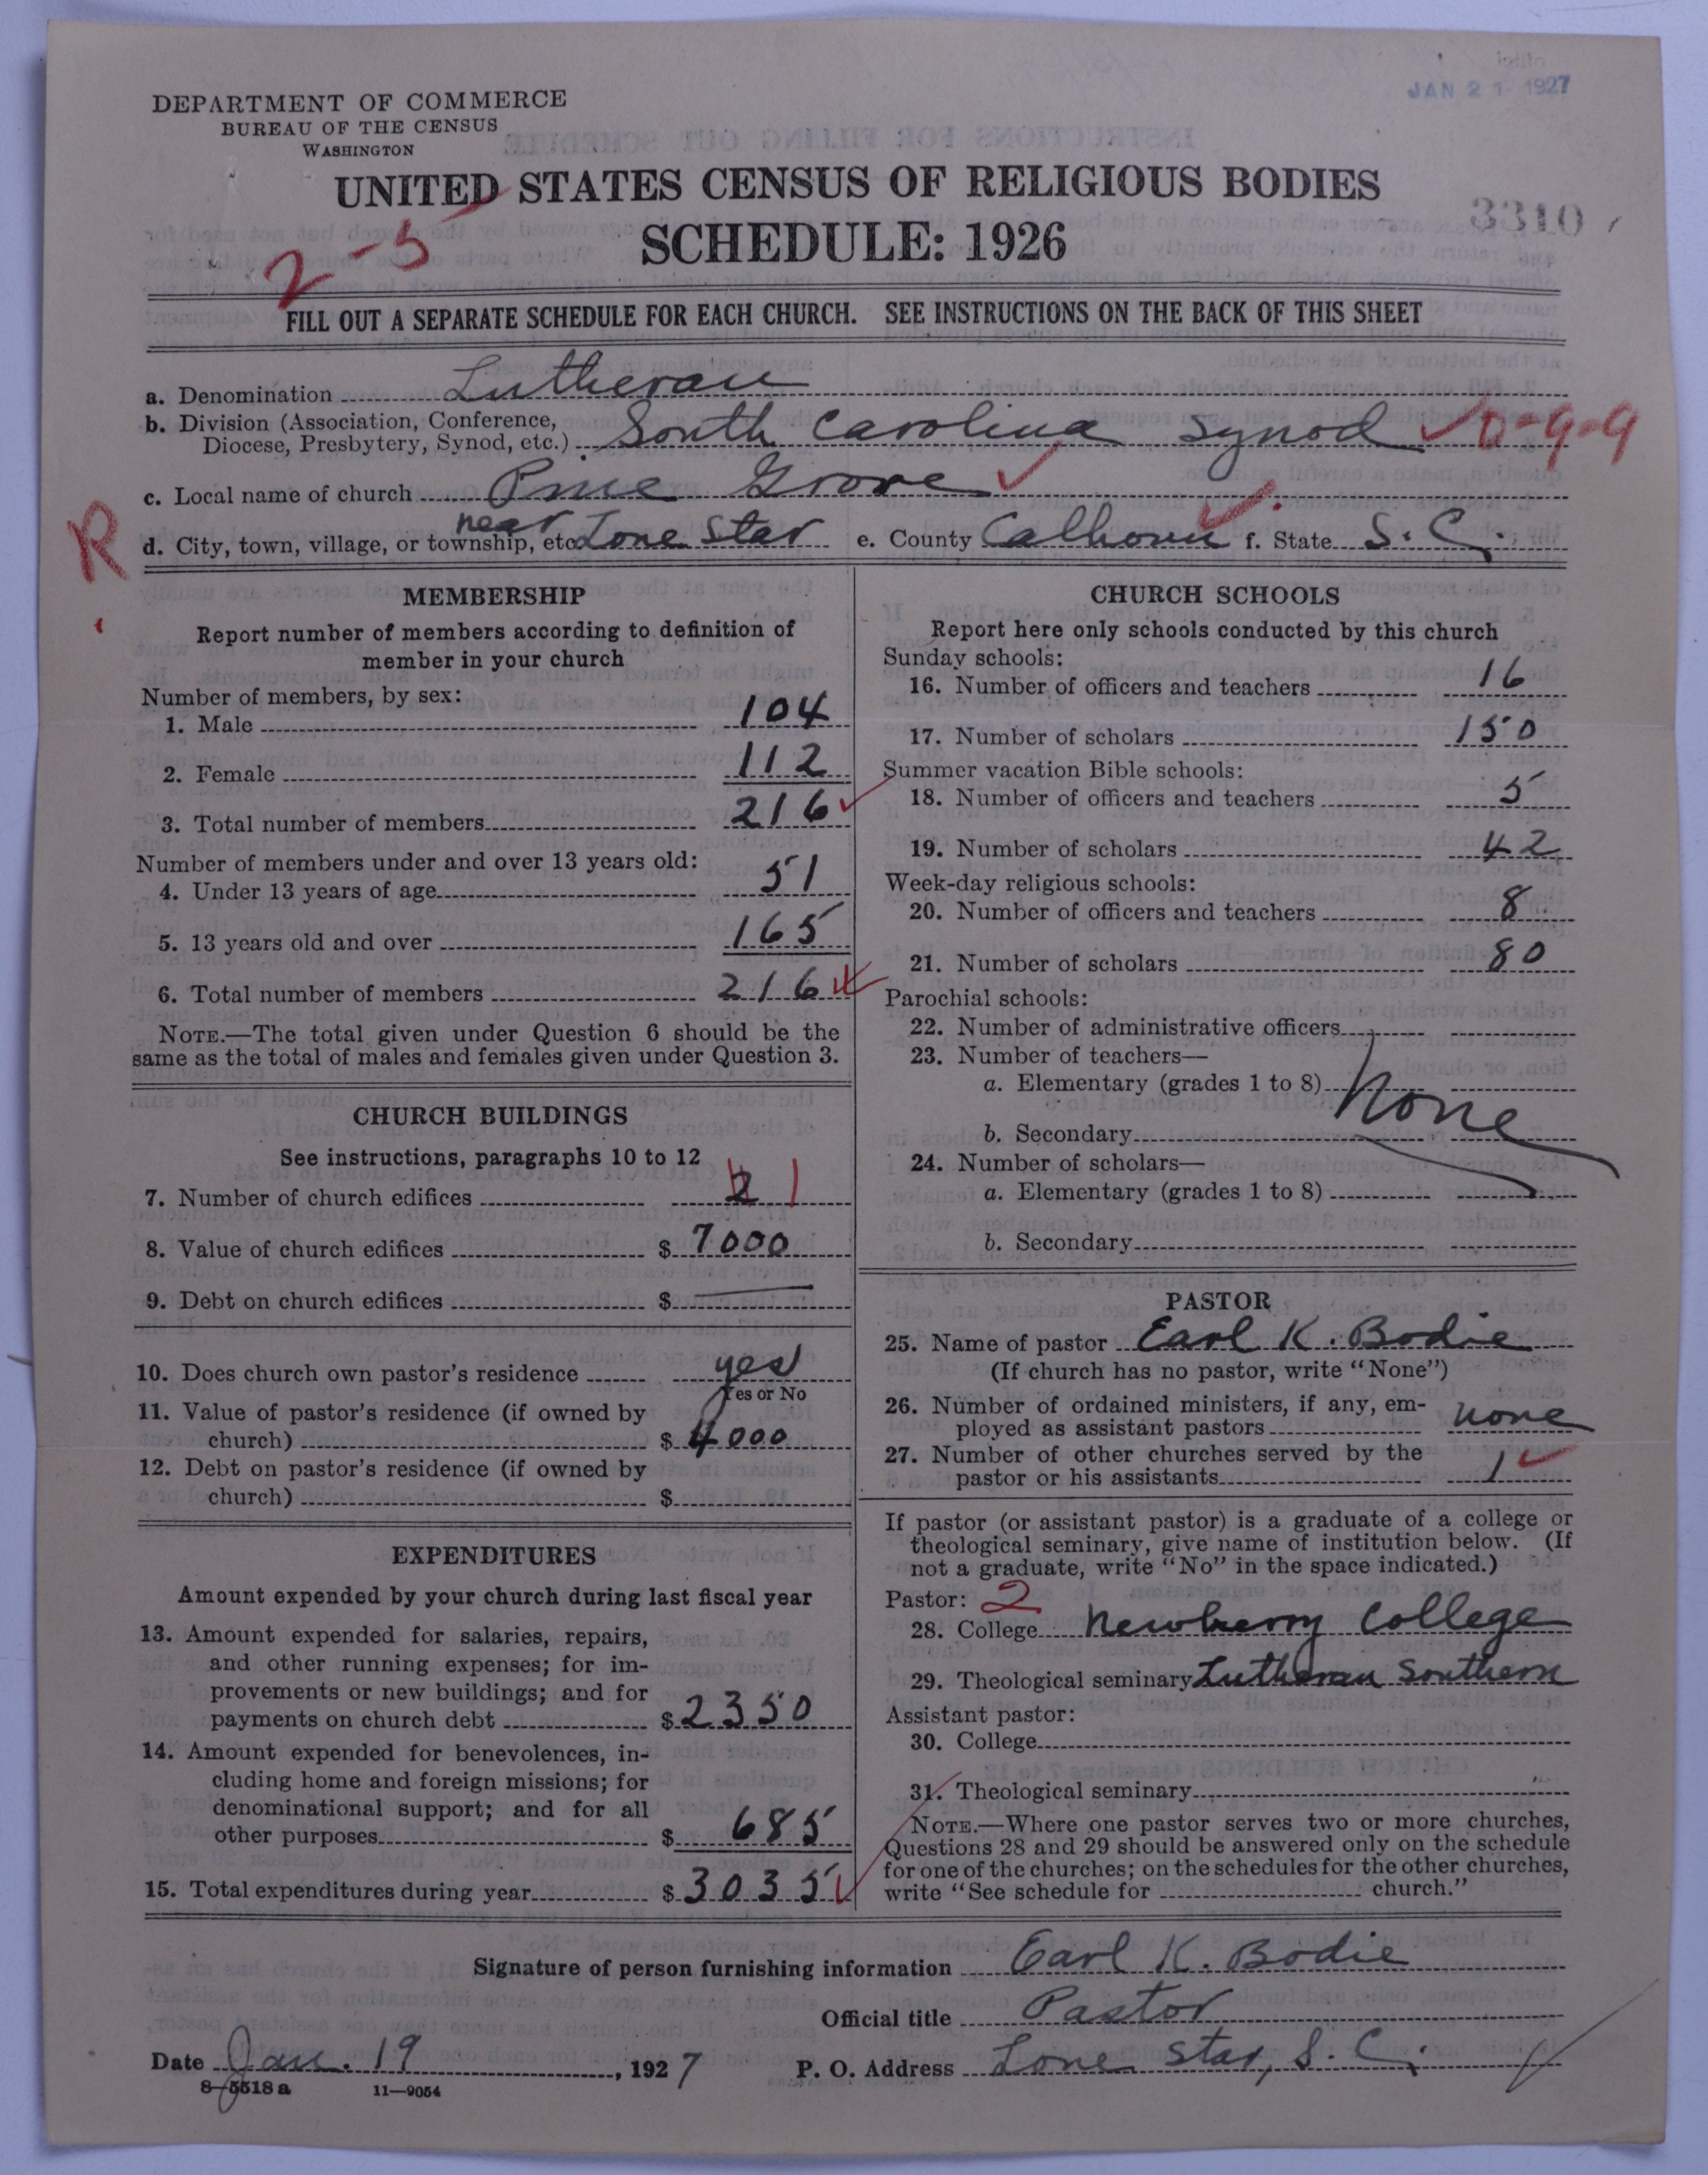 JAN 21 1927
DEPARTMENT OF COMMERCE
BUREAU OF THE CENSUS
WASHINGTON
UNITED STATES CENSUS OF RELIGIOUS BODIES
SCHEDULE: 1926
3310
2-5
FILL OUT A SEPARATE SCHEDULE FOR EACH CHURCH. SEE INSTRUCTIONS ON THE BACK OF THIS SHEET
a. Denomination Lutheran
b. Division (Association, Conference,
Diocese, Presbytery, Synod, etc.) South Carolina Synod 0-9-9
c. Local name of church Pine Grove
R
d. City, town, village, or township, etc. near Lone Star e. County Calhoun f. State S.C.
MEMBERSHIP
Report number of members according to definition of
member in your church
Number of members, by sex:
1. Male 104
2. Female 112
3. Total number of members 216
Number of members under and over 13 years old:
4. Under 13 years of age 51
5. 13 years old and over 165
6. Total number of members 216
NOTE.—The total given under Question 6 should be the
same as the total of males and females given under Question 3.
CHURCH BUILDINGS
See instructions, paragraphs 10 to 12
7. Number of church edifices 2 1
8. Value of church edifices $ 7000
9. Debt on church edifices $ —
10. Does church own pastor's residence yes
Yes or No
11. Value of pastor's residence (if owned by
church) $ 4000
12. Debt on pastor's residence (if owned by
church) $
EXPENDITURES
Amount expended by your church during last fiscal year
13. Amount expended for salaries, repairs,
and other running expenses; for im-
provements or new buildings; and for
payments on church debt $ 2350
14. Amount expended for benevolences, in-
cluding home and foreign missions; for
denominational support; and for all
other purposes $ 685
15. Total expenditures during year $ 3035
CHURCH SCHOOLS
Report here only schools conducted by this church
Sunday schools:
16. Number of officers and teachers 16
17. Number of scholars 150
Summer vacation Bible schools:
18. Number of officers and teachers 5
19. Number of scholars 42
Week-day religious schools:
20. Number of officers and teachers 8
21. Number of scholars 80
Parochial schools:
22. Number of administrative officers
23. Number of teachers—
a. Elementary (grades 1 to 8) None
b. Secondary
24. Number of scholars—
a. Elementary (grades 1 to 8)
b. Secondary
PASTOR
25. Name of pastor Earl K. Bodie
(If church has no pastor, write "None")
26. Number of ordained ministers, if any, em-
ployed as assistant pastors none
27. Number of other churches served by the
pastor or his assistants 1
If pastor (or assistant pastor) is a graduate of a college or
theological seminary, give name of institution below. (If
not a graduate, write "No" in the space indicated.)
Pastor: 2
28. College Newberry College
29. Theological seminary Lutheran Southern
Assistant pastor:
30. College
31. Theological seminary
NOTE.—Where one pastor serves two or more churches,
Questions 28 and 29 should be answered only on the schedule
for one of the churches; on the schedules for the other churches,
write "See schedule for church."
Signature of person furnishing information Earl K. Bodie
Official title Pastor
Date Jan. 19, 1927 P. O. Address Lone Star, S.C.
8—5518 a 11—9054